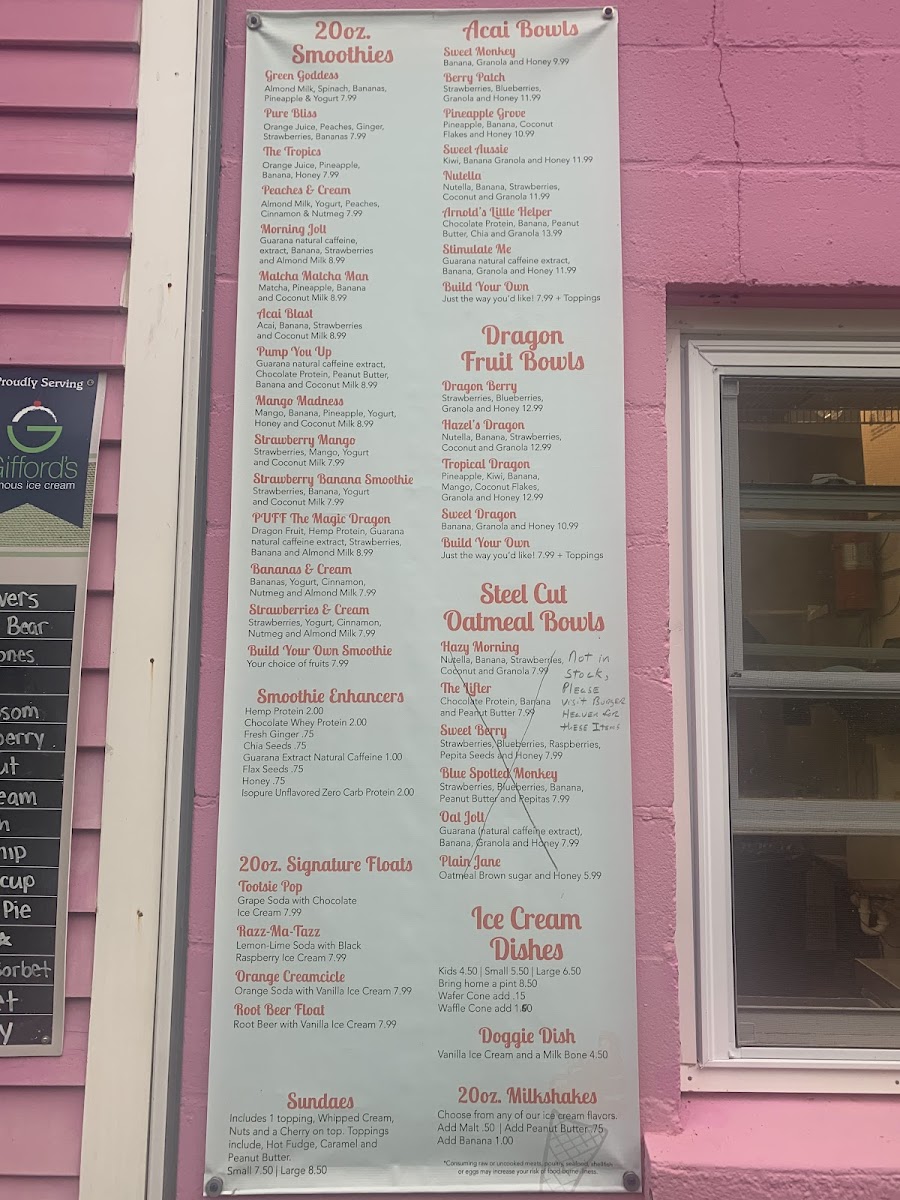 20oz.
Smoothies
Green Goddess
Almond Milk, Spinach, Bananas,
Pineapple & Yogurt 7.99
Pure Bliss
Orange Juice, Peaches, Ginger,
Strawberries, Bananas 7.99
The Tropics
Orange Juice, Pineapple,
Banana, Honey 7.99
Peaches & Cream
Almond Milk, Yogurt, Peaches,
Cinnamon & Nutmeg 7.99
Morning Jolt
Guarana natural caffeine,
extract, Banana, Strawberries
and Almond Milk 8.99
Matcha Matcha Man
Matcha, Pineapple, Banana
and Coconut Milk 8.99
Acai Blast
Acai, Banana, Strawberries
and Coconut Milk 8.99
Pump You Up
Guarana natural caffeine extract,
Chocolate Protein, Peanut Butter,
Banana and Coconut Milk 8.99
Mango Madness
Mango, Banana, Pineapple, Yogurt,
Honey and Coconut Milk 8.99
Strawberry Mango
Strawberries, Mango, Yogurt
and Coconut Milk 7.99
Strawberry Banana Smoothie
Strawberries, Banana, Yogurt
and Coconut Milk 7.99
PUFF The Magic Dragon
Dragon Fruit, Hemp Protein, Guarana
natural caffeine extract, Strawberries,
Banana and Almond Milk 8.99
Bananas & Cream
Bananas, Yogurt, Cinnamon,
Nutmeg and Almond Milk 7.99
Strawberries & Cream
Strawberries, Yogurt, Cinnamon,
Nutmeg and Almond Milk 7.99
Build Your Own Smoothie
Your choice of fruits 7.99
Smoothie Enhancers
Hemp Protein 2.00
Chocolate Whey Protein 2.00
Fresh Ginger .75
Chia Seeds .75
Guarana Extract Natural Caffeine 1.00
Flax Seeds .75
Honey .75
Isopure Unflavored Zero Carb Protein 2.00
20oz. Signature Floats
Tootsie Pop
Grape Soda with Chocolate
Ice Cream 7.99
Razz-Ma-Tazz
Lemon-Lime Soda with Black
Raspberry Ice Cream 7.99
Orange Creamcicle
Orange Soda with Vanilla Ice Cream 7.99
Root Beer Float
Root Beer with Vanilla Ice Cream 7.99
Sundaes
Includes 1 topping, Whipped Cream,
Nuts and a Cherry on top. Toppings
include, Hot Fudge, Caramel and
Peanut Butter.
Small 7.50 | Large 8.50
Acai Bowls
Sweet Monkey
Banana, Granola and Honey 9.99
Berry Patch
Strawberries, Blueberries,
Granola and Honey 11.99
Pineapple Grove
Pineapple, Banana, Coconut
Flakes and Honey 10.99
Sweet Aussie
Kiwi, Banana Granola and Honey 11.99
Nutella
Nutella, Banana, Strawberries,
Coconut and Granola 11.99
Arnold's Little Helper
Chocolate Protein, Banana, Peanut
Butter, Chia and Granola 13.99
Stimulate Me
Guarana natural caffeine extract,
Banana, Granola and Honey 11.99
Build Your Own
Just the way you'd like! 7.99 + Toppings
Dragon
Fruit Bowls
Dragon Berry
Strawberries, Blueberries,
Granola and Honey 12.99
Hazel's Dragon
Nutella, Banana, Strawberries,
Coconut and Granola 12.99
Tropical Dragon
Pineapple, Kiwi, Banana,
Mango, Coconut Flakes,
Granola and Honey 12.99
Sweet Dragon
Banana, Granola and Honey 10.99
Build Your Own
Just the way you'd like! 7.99 + Toppings
Steel Cut
Oatmeal Bowls
Hazy Morning
Nutella, Banana, Strawberries,
Coconut and Granola 7.99
The Lifter
Chocolate Protein, Banana
and Peanut Butter 7.99
Sweet Berry
Strawberries, Blueberries, Raspberries,
Pepita Seeds and Honey 7.99
Blue Spotted Monkey
Strawberries, Blueberries, Banana,
Peanut Butter and Pepitas 7.99
Oat Jolt
Guarana (natural caffeine extract),
Banana, Granola and Honey 7.99
Plain Jane
Oatmeal Brown sugar and Honey 5.99
Not in
Stock,
Please
visit Burger
Heaven for
these Items
Ice Cream
Dishes
Kids 4.50 | Small 5.50 | Large 6.50
Bring home a pint 8.50
Wafer Cone add .15
Waffle Cone add
Doggie Dish
Vanilla Ice Cream and a Milk Bone 4.50
20oz. Milkshakes
Choose from any of our ice cream flavors.
Add Malt .50 | Add Peanut Butter .75
Add Banana 1.00
*Consuming raw or uncooked meats, poultry, seafood, shellfish
or eggs may increase your risk of foodborne illness.
Proudly Serving
Gifford's
nous ice cream
vers
Bear
ones
som
berry
ut
eam
n
hip
cup
Pie
Sorbet
et
y